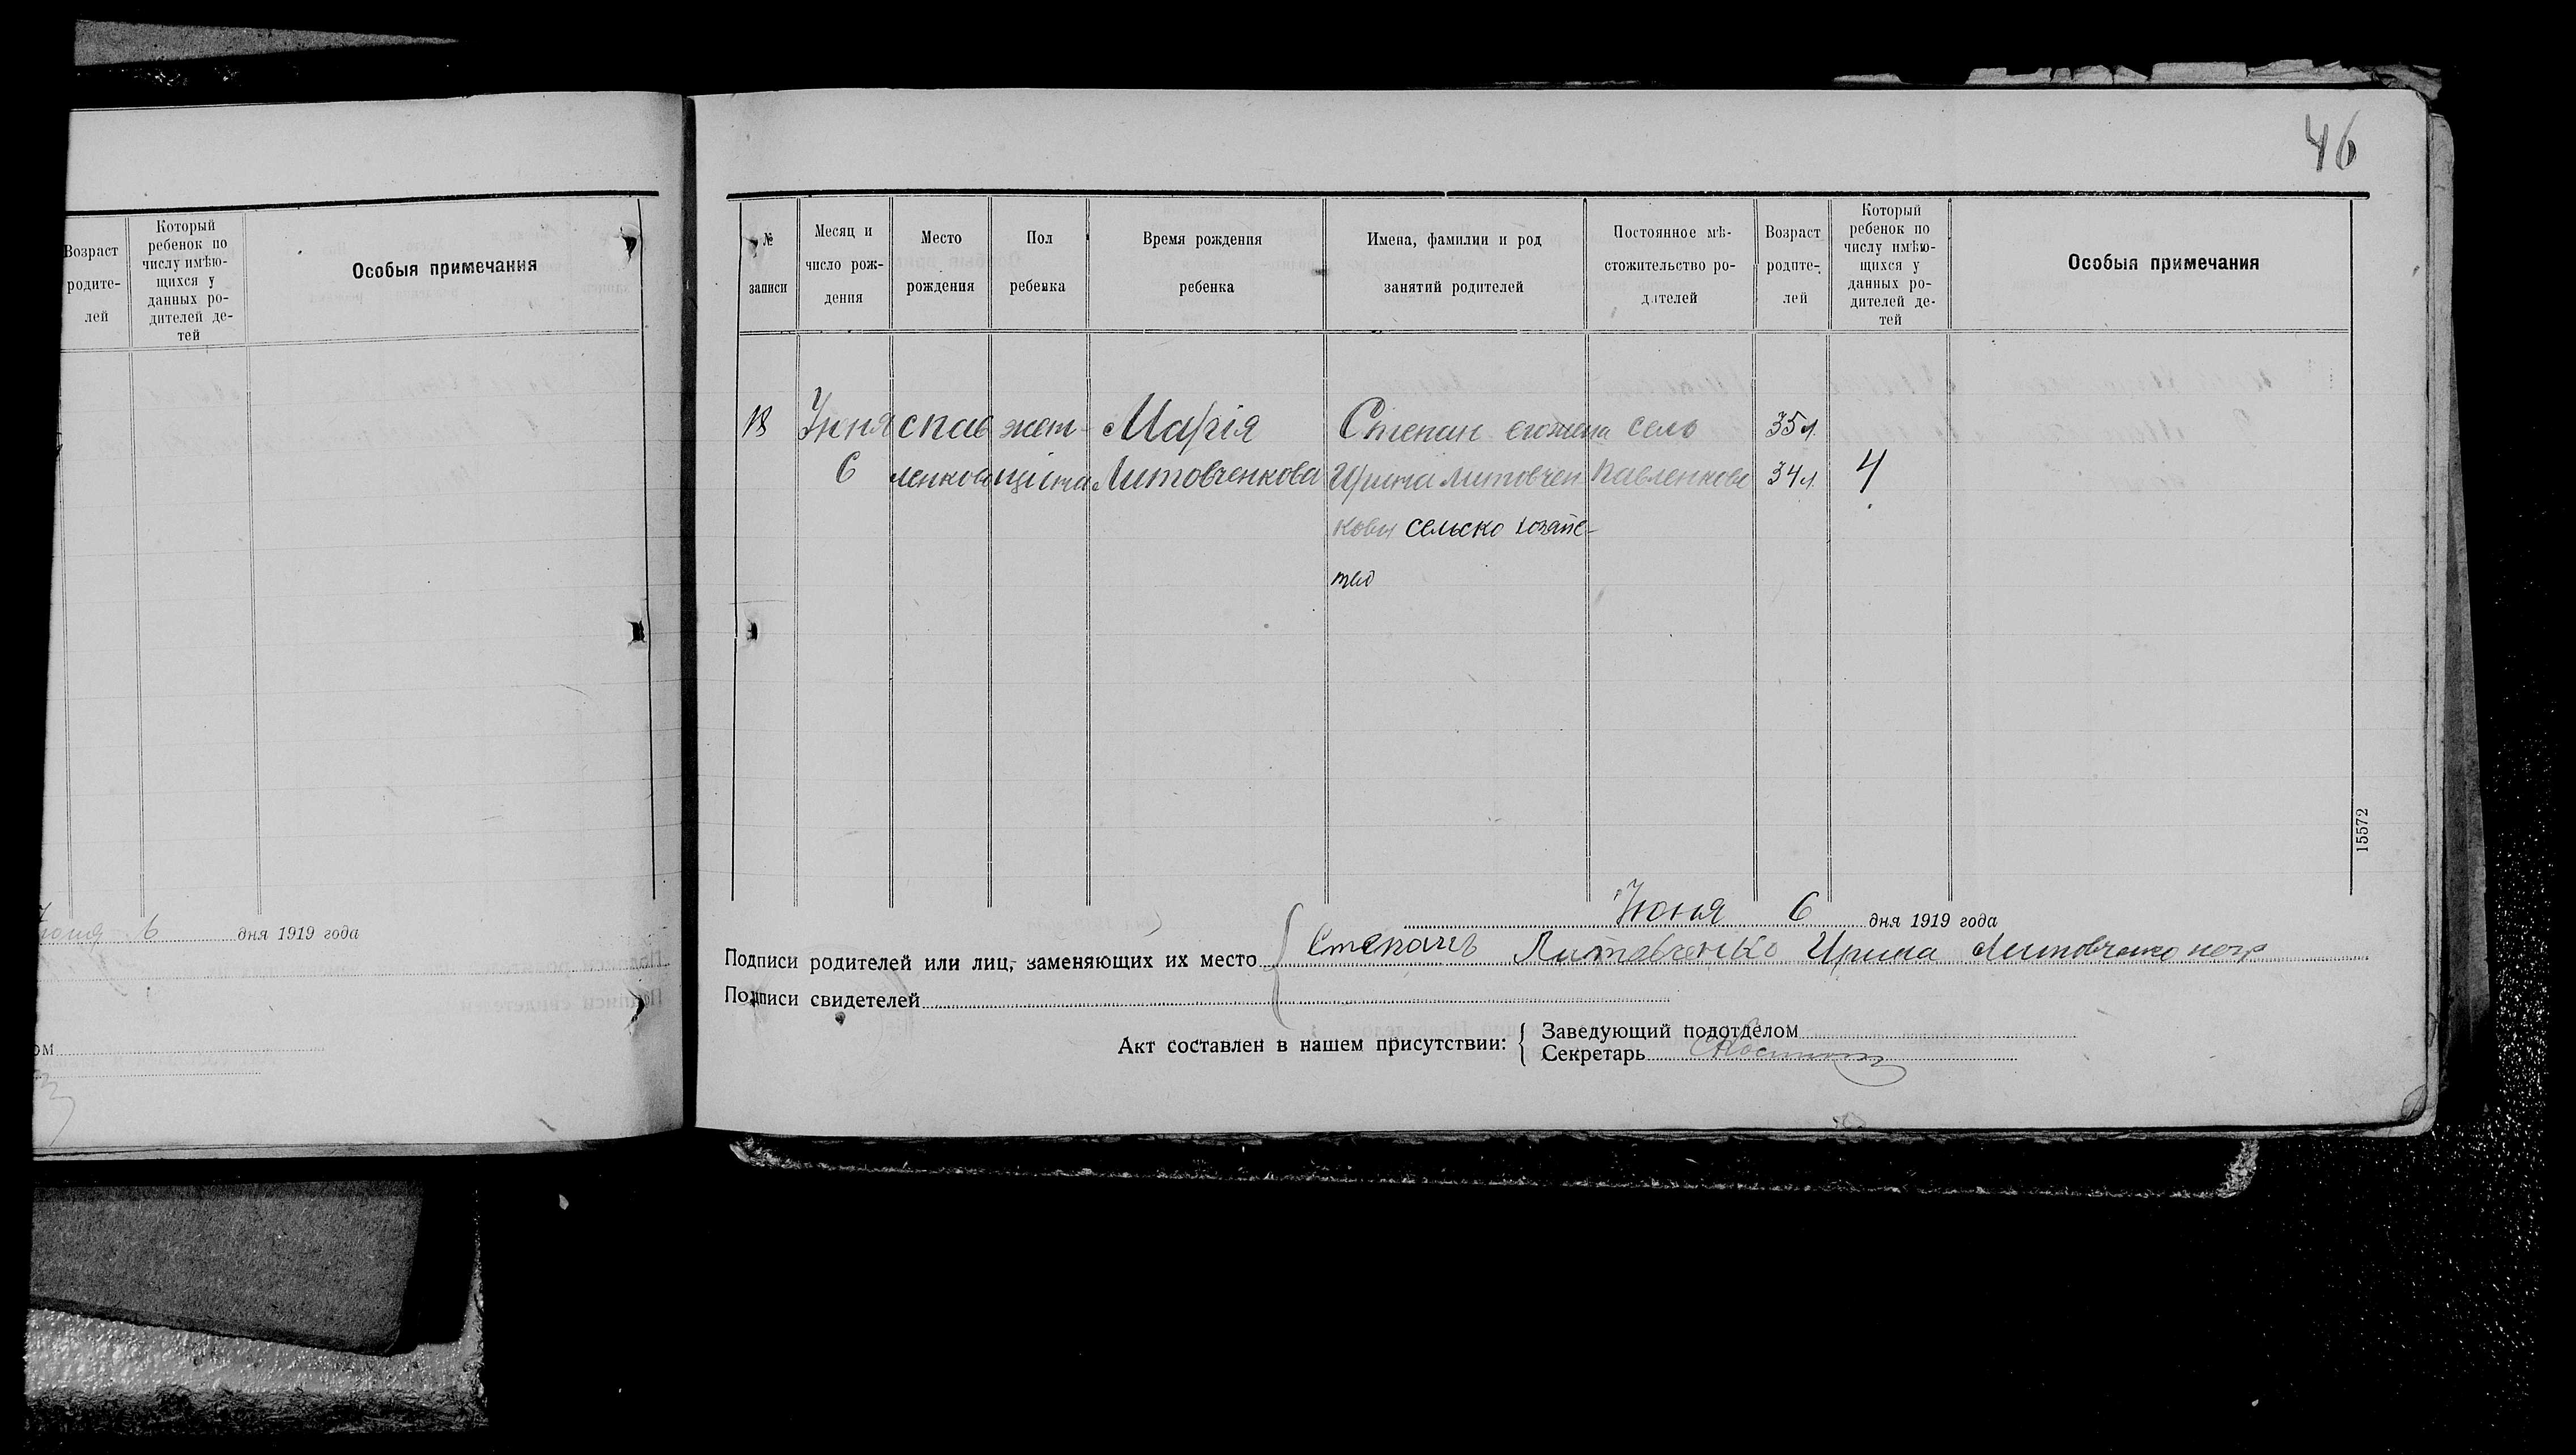 Возраст
родите-
лей
Который
ребенок по
числу имѣю-
щихся у
данных ро-
дителей де-
тей
Особыя примечания
6 дня 1919 года
46
№
записи
Месяц и
число рож-
дения
Место
рождения
Пол
ребенка
Время рождения
ребенка
Имена, фамилии и род
занятий родителей
Постоянное мѣ-
стожительство ро-
дителей
Возраст
родите-
лей
Который
ребенок по
числу имѣю-
щихся у
данных ро-
дителей де-
тей
Особыя примечания
18 Июня с пав жен- Марія Степан его жена село 35 л.
6 ленково щина Литовченкова Ирина Литовчен Павленково 34 л. 4
ковы сельско хозяйс-
тво
15572
Июня 6 дня 1919 года
Подписи родителей или лиц, заменяющих их место Степанъ Литовченко Ирина Литовченко
Подписи свидетелей
Акт составлен в нашем присутствии:
Заведующий подотделом
Секретарь